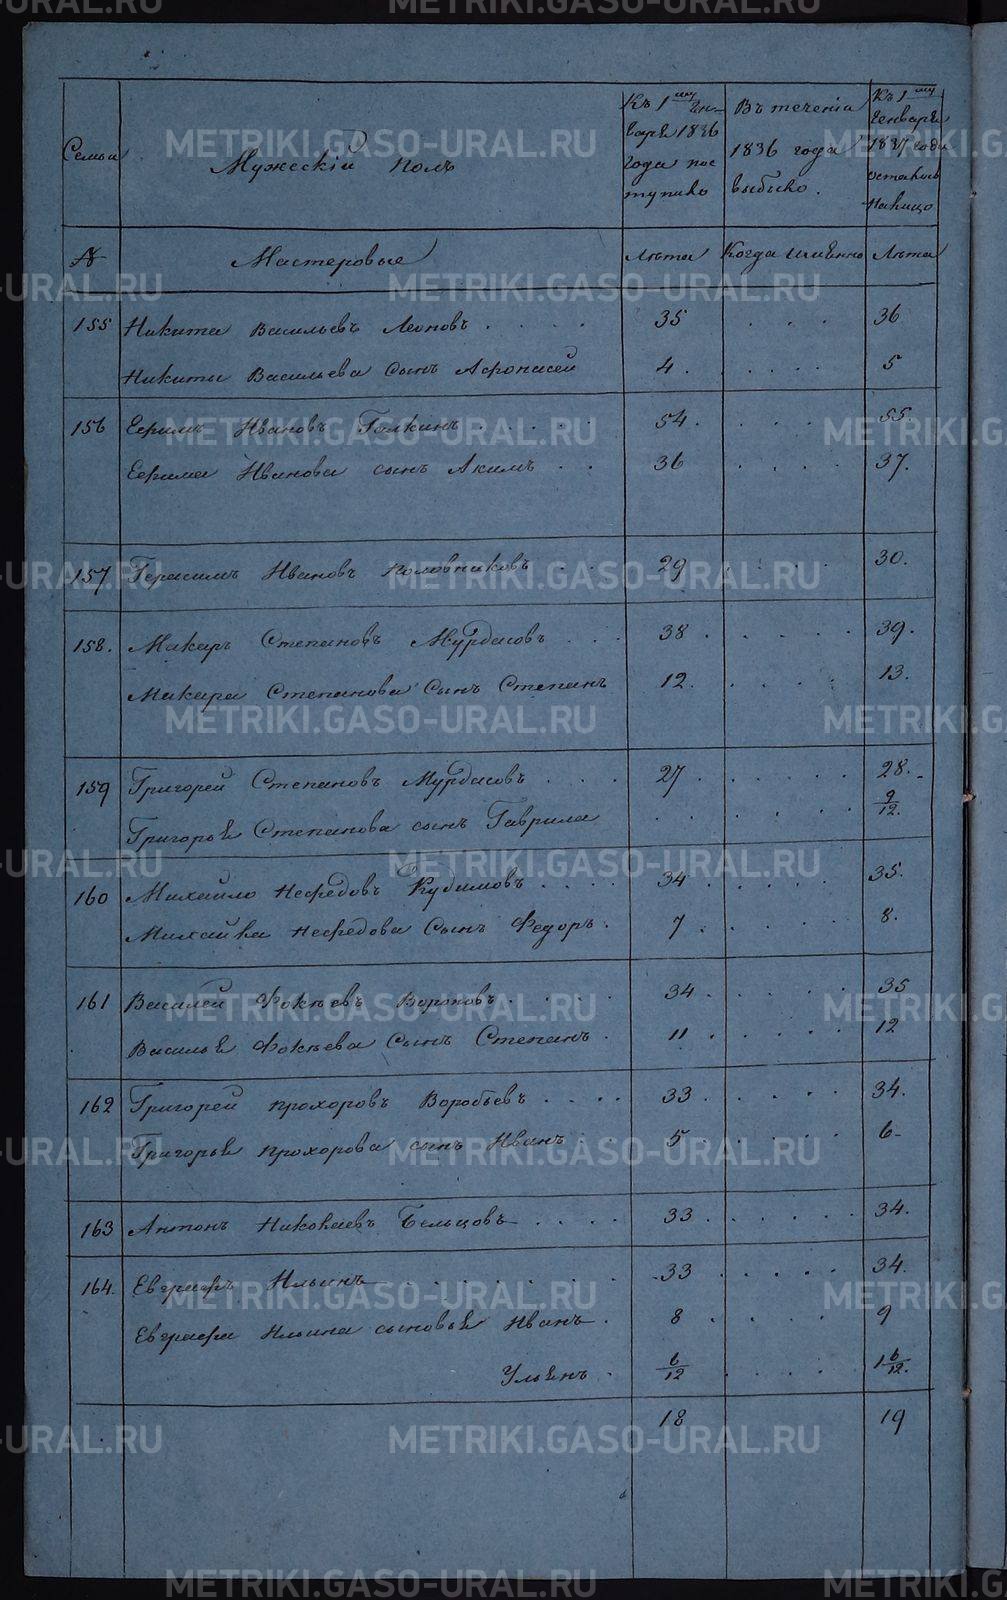 METRIKI.GASO-URAL.RU METRIKI.GASO-URAL.RU
Семьи
Мужескій полъ
Къ 1му Ген-
варѣ 1836
года пос
тупило
Въ теченіи
1836 года
выбыло.
Къ 1му
Генваря
1837 года
осталось
налицо
№ Мастеровые Лѣта Когда именно Лѣта
155 Никита Васильевъ Леоновъ 35 36
Никиты Васильева сынъ Афонасей 4. 5
156 Ефимъ Ивановъ Галкинъ 54. 55.
Ефима Иванова сынъ Акимъ 36 37.
157 Герасимъ Ивановъ Половниковъ 29 30.
158. Макаръ Степановъ Мурдасовъ 38. 39.
Макара Степанова сынъ Степанъ 12. 13.
159 Григорей Степановъ Мурдасовъ 27. 28.
Григорья Степанова сынъ Гаврила 9/12.
160 Михайло Нефедовъ Кудимовъ 34. 35.
Михайла Нефедова сынъ Федоръ. 7. 8.
161 Василей Фокѣевъ Вороновъ 34. 35
Василья Фокѣева сынъ Степанъ. 11. 12
162 Григорей Прохоровъ Воробьевъ 33. 34.
Григорья Прохорова сынъ Иванъ 5. 6
163 Антонъ Николаевъ Бельцовъ 33. 34.
164. Евграфъ Ильинъ 33. 34.
Евграфа Ильина сыновья Иванъ. 8. 9
Ульянъ. 6/12 1 6/12.
18 19